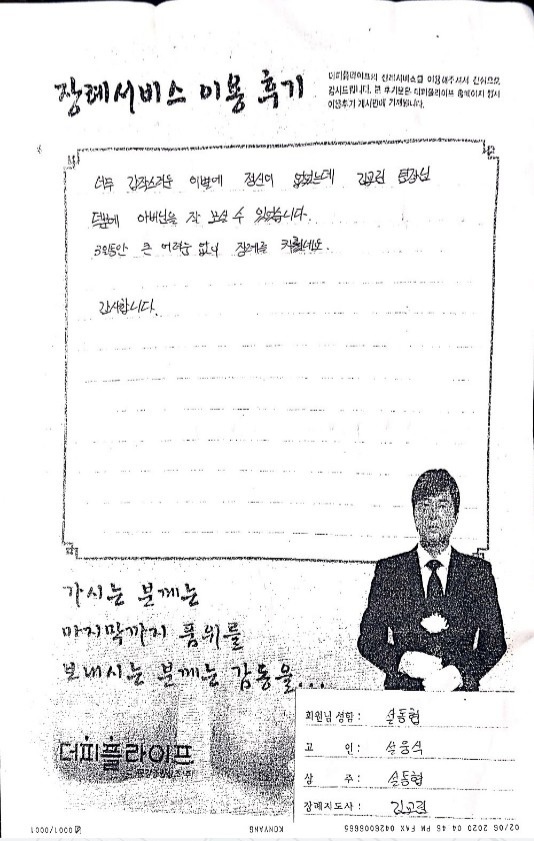 장례서비스 이용 후기
더피플라이프의 장례서비스를 이용해주셔서 진심으로
감사드립니다. 본 후기문은 더피플라이프 홈페이지 행사
이용후기 게시판에 기재됩니다.
너무 갑작스러운 이별에 정신이 없었는데 김교련 팀장님
덕분에 아버님을 잘 보낼 수 있었습니다.
3일동안 큰 어려움 없이 장례를 치뤘네요.
감사합니다.
가시는 분께는
마지막까지 품위를
보내시는 분께는 감동을...
더피플라이프
회원님 성함 : 설동협
고 인 : 설웅식
상 주 : 설동협
장례지도사 :
02/06 2020 04:46 PM FAX 0426006665
KONYANG
0001/0001